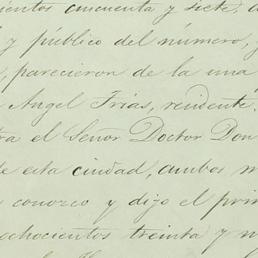 cientos cincuenta y siete, a
y público del número, y
parecieron de la una
Angel Frias, residente
tra el Señor Doctor Don
de esta ciudad, ambos m
conozco y dijo el pri
ochocientos treinta y n